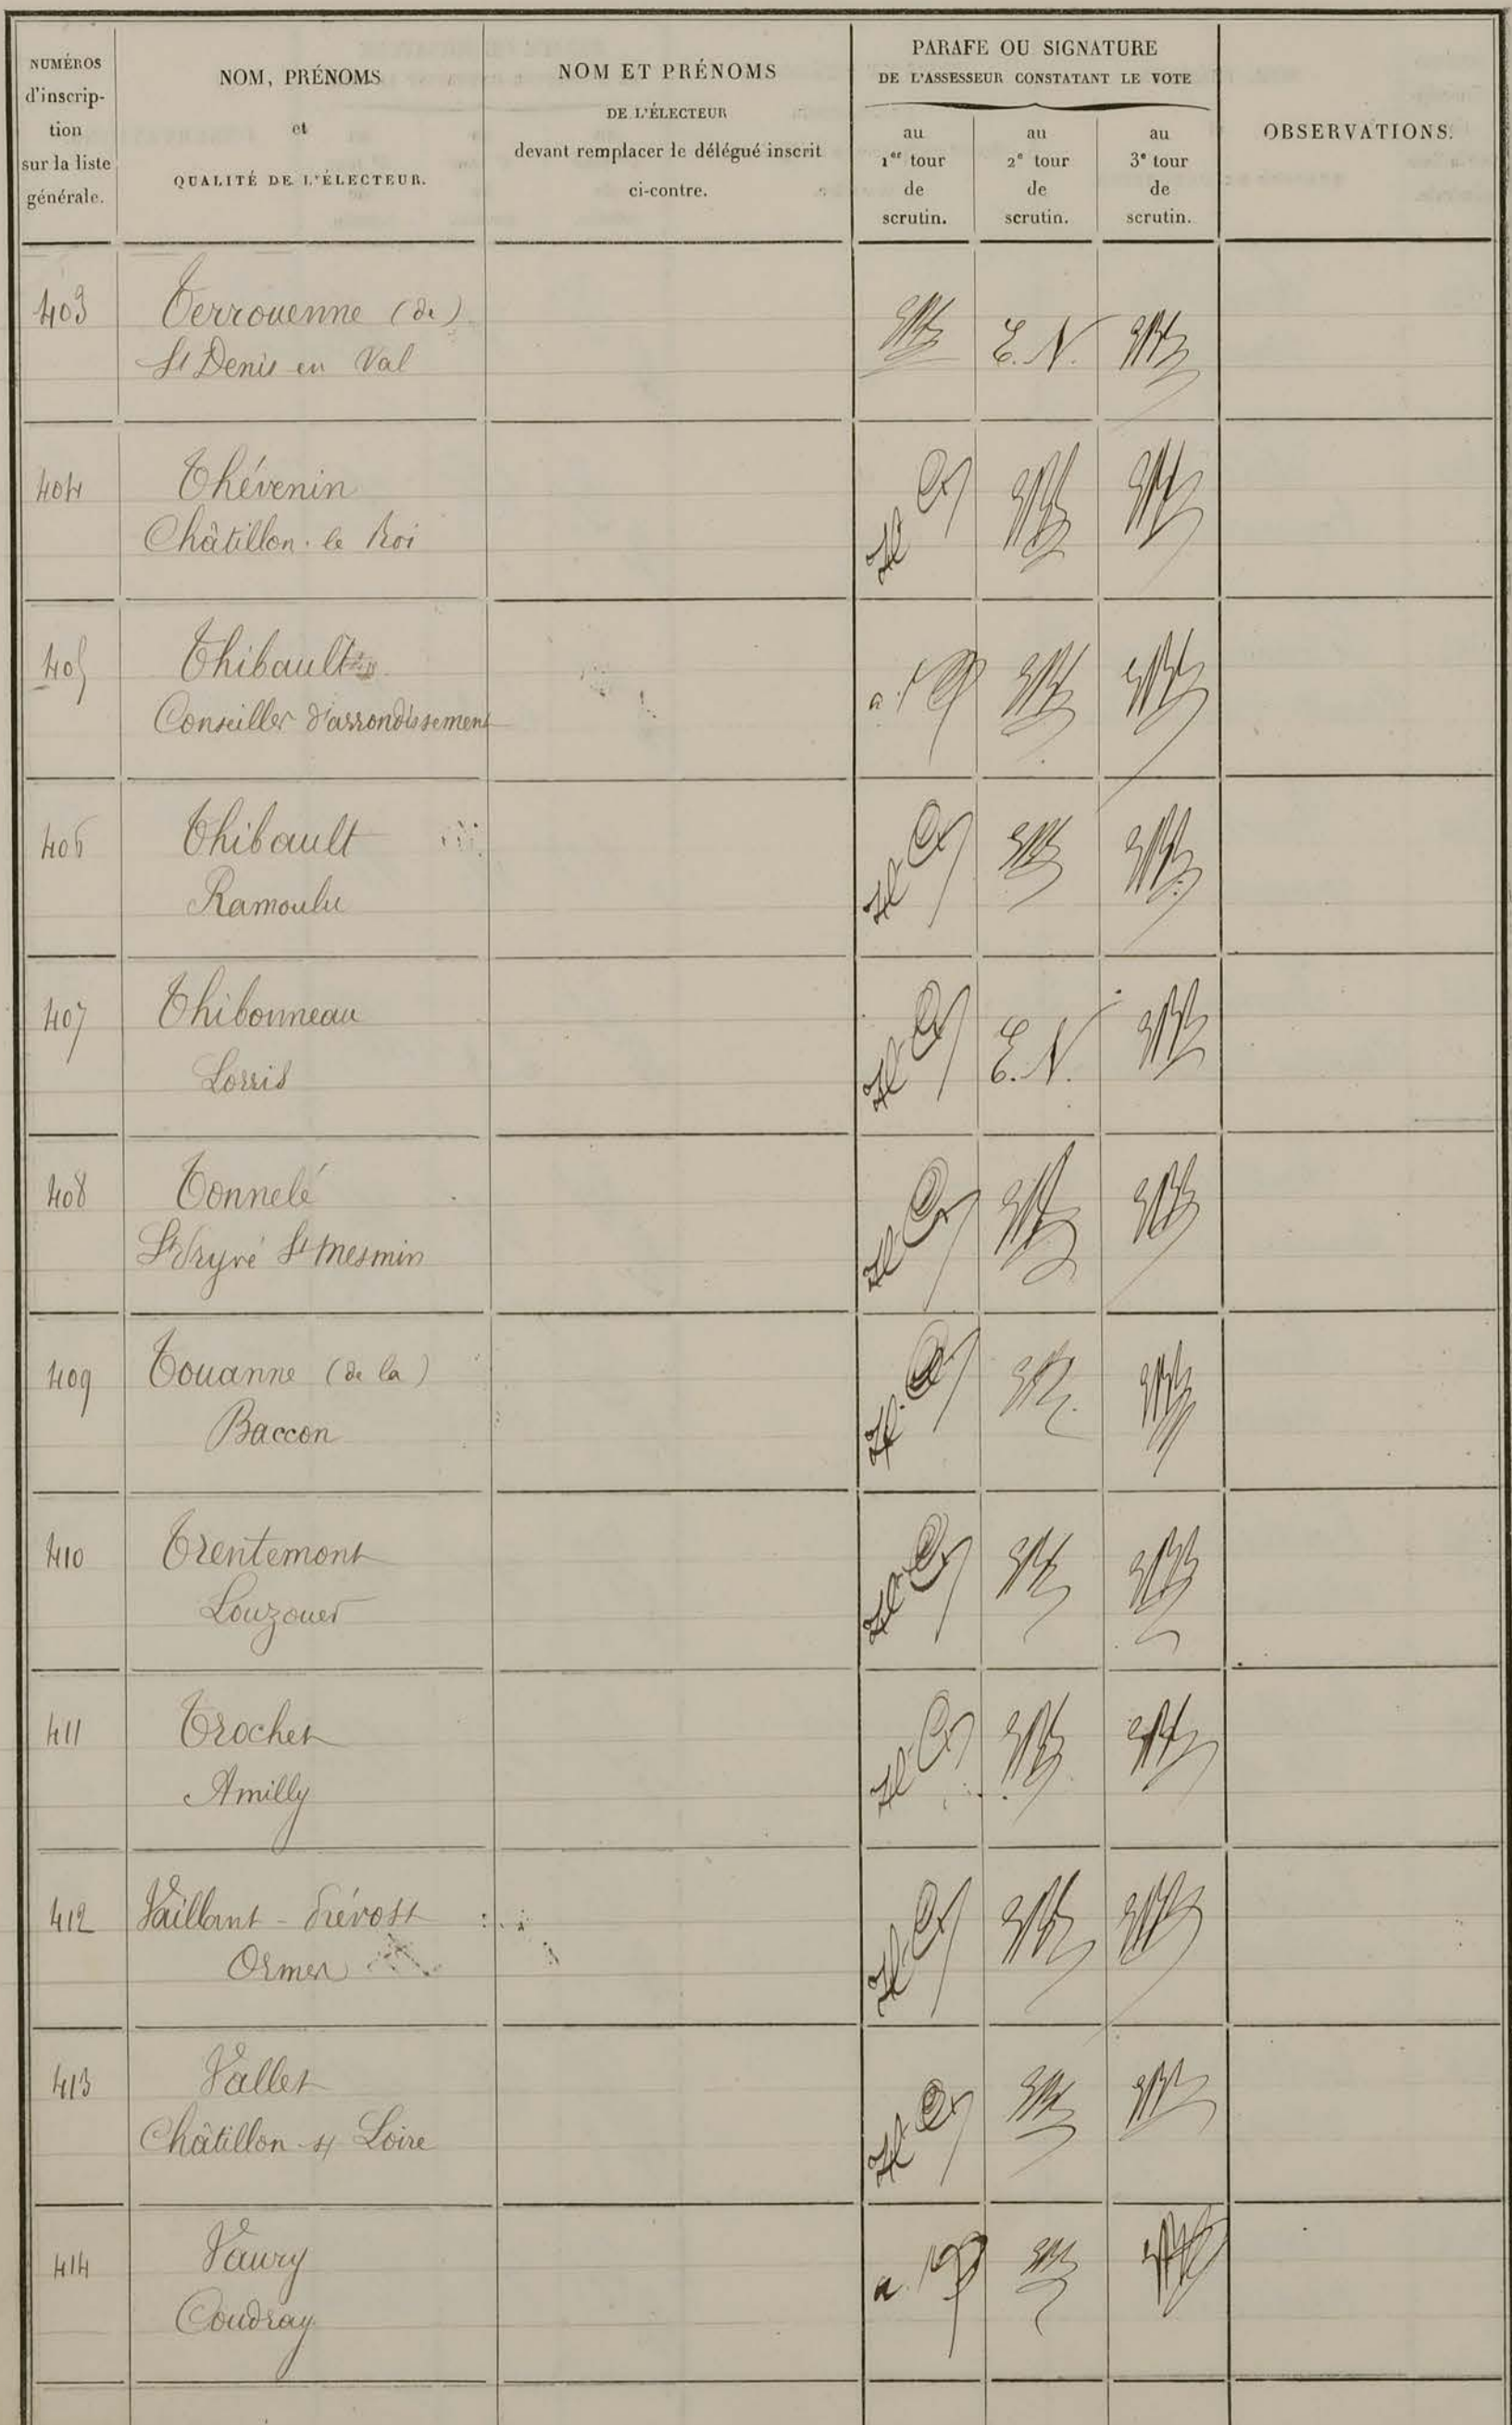 NUMÉROS
d'inscrip-
tion
sur la liste
générale.
NOM, PRÉNOMS
et
QUALITÉ DE L'ÉLECTEUR.
NOM ET PRÉNOMS
DE L'ÉLECTEUR
devant remplacer le délégué inscrit
ci-contre.
PARAFE OU SIGNATURE
DE L'ASSESSEUR CONSTATANT LE VOTE
au
1er tour
de
scrutin.
au
2e tour
de
scrutin.
au
3e tour
de
scrutin.
OBSERVATIONS.
403 Terrouenne (de)
St Denis en Val
E. N.
404 Thévenin
Châtillon-le Roi
405 Thibault
Conseiller d'arrondissement
406 Thibault
Ramoulu
407 Thibonneau
Lorris
E. N.
408 Tonnelé
St Pryvé St Mesmin
409 Touanne (de la)
Baccon
410 Trentemont
Louzouer
411 Trochet
Amilly
412 Vaillant-Prévost
Ormes
413 Vallet
Châtillon s/ Loire
414 Vaury
Coudray